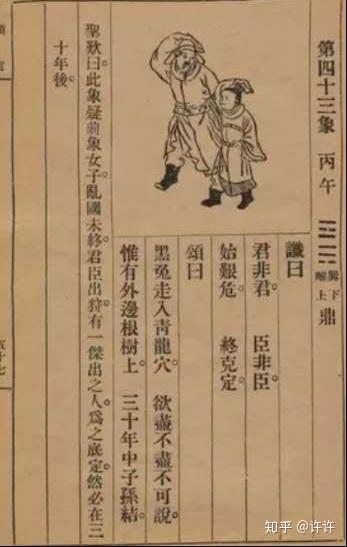 第四十三象 丙午 ䷱ 巽下離上 鼎
讖曰
君非君 臣非臣。
始艱危。 終克定。
頌曰
黑兔走入青龍穴。 欲盡不盡不可說。
惟有外邊根樹上。 三十年中子孫結。
聖歎曰。此象疑前象女子亂國未終。君臣出狩。有一傑出之人。爲之底定。然必在三
十年後。
五十七
知乎 @许许